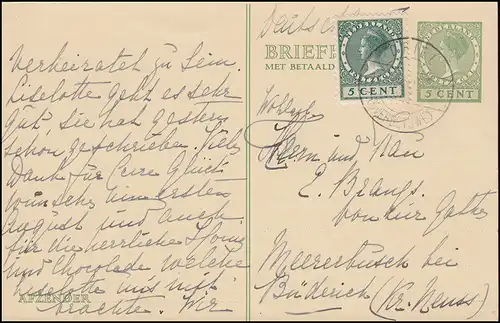 verheiratet zu sein.
Liselotte geht es sehr
gut, sie hat gestern
schon geschrieben. Viele
Dank für Eure Glück
wünsche zum ersten
August und auch
für die herrliche
und Chocolade welche
Liselotte uns mit
AFZENDER
brachte. Wir
Deutschland
BRIEFK
MET BETAALD
NEDERLAND
5 CENT
NEDERLAND
5 CENT
Herrn und Frau
E. Brangs.
von zur Gathen
Meererbusch bei
Büderich (Kr. Neuss)